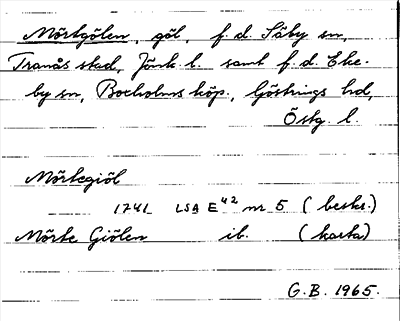 Mörtgölen, göl, f.d. Säby sn,
Tranås stad, Jönk. l. samt f.d. Eke-
by sn, Boxholms köp., Göstrings hd,
Östg. l.
Mörtegiöl
1741 LSA E42 nr 5 (beskr.)
Mörte Giölen ib. (karta)
G.B. 1965.